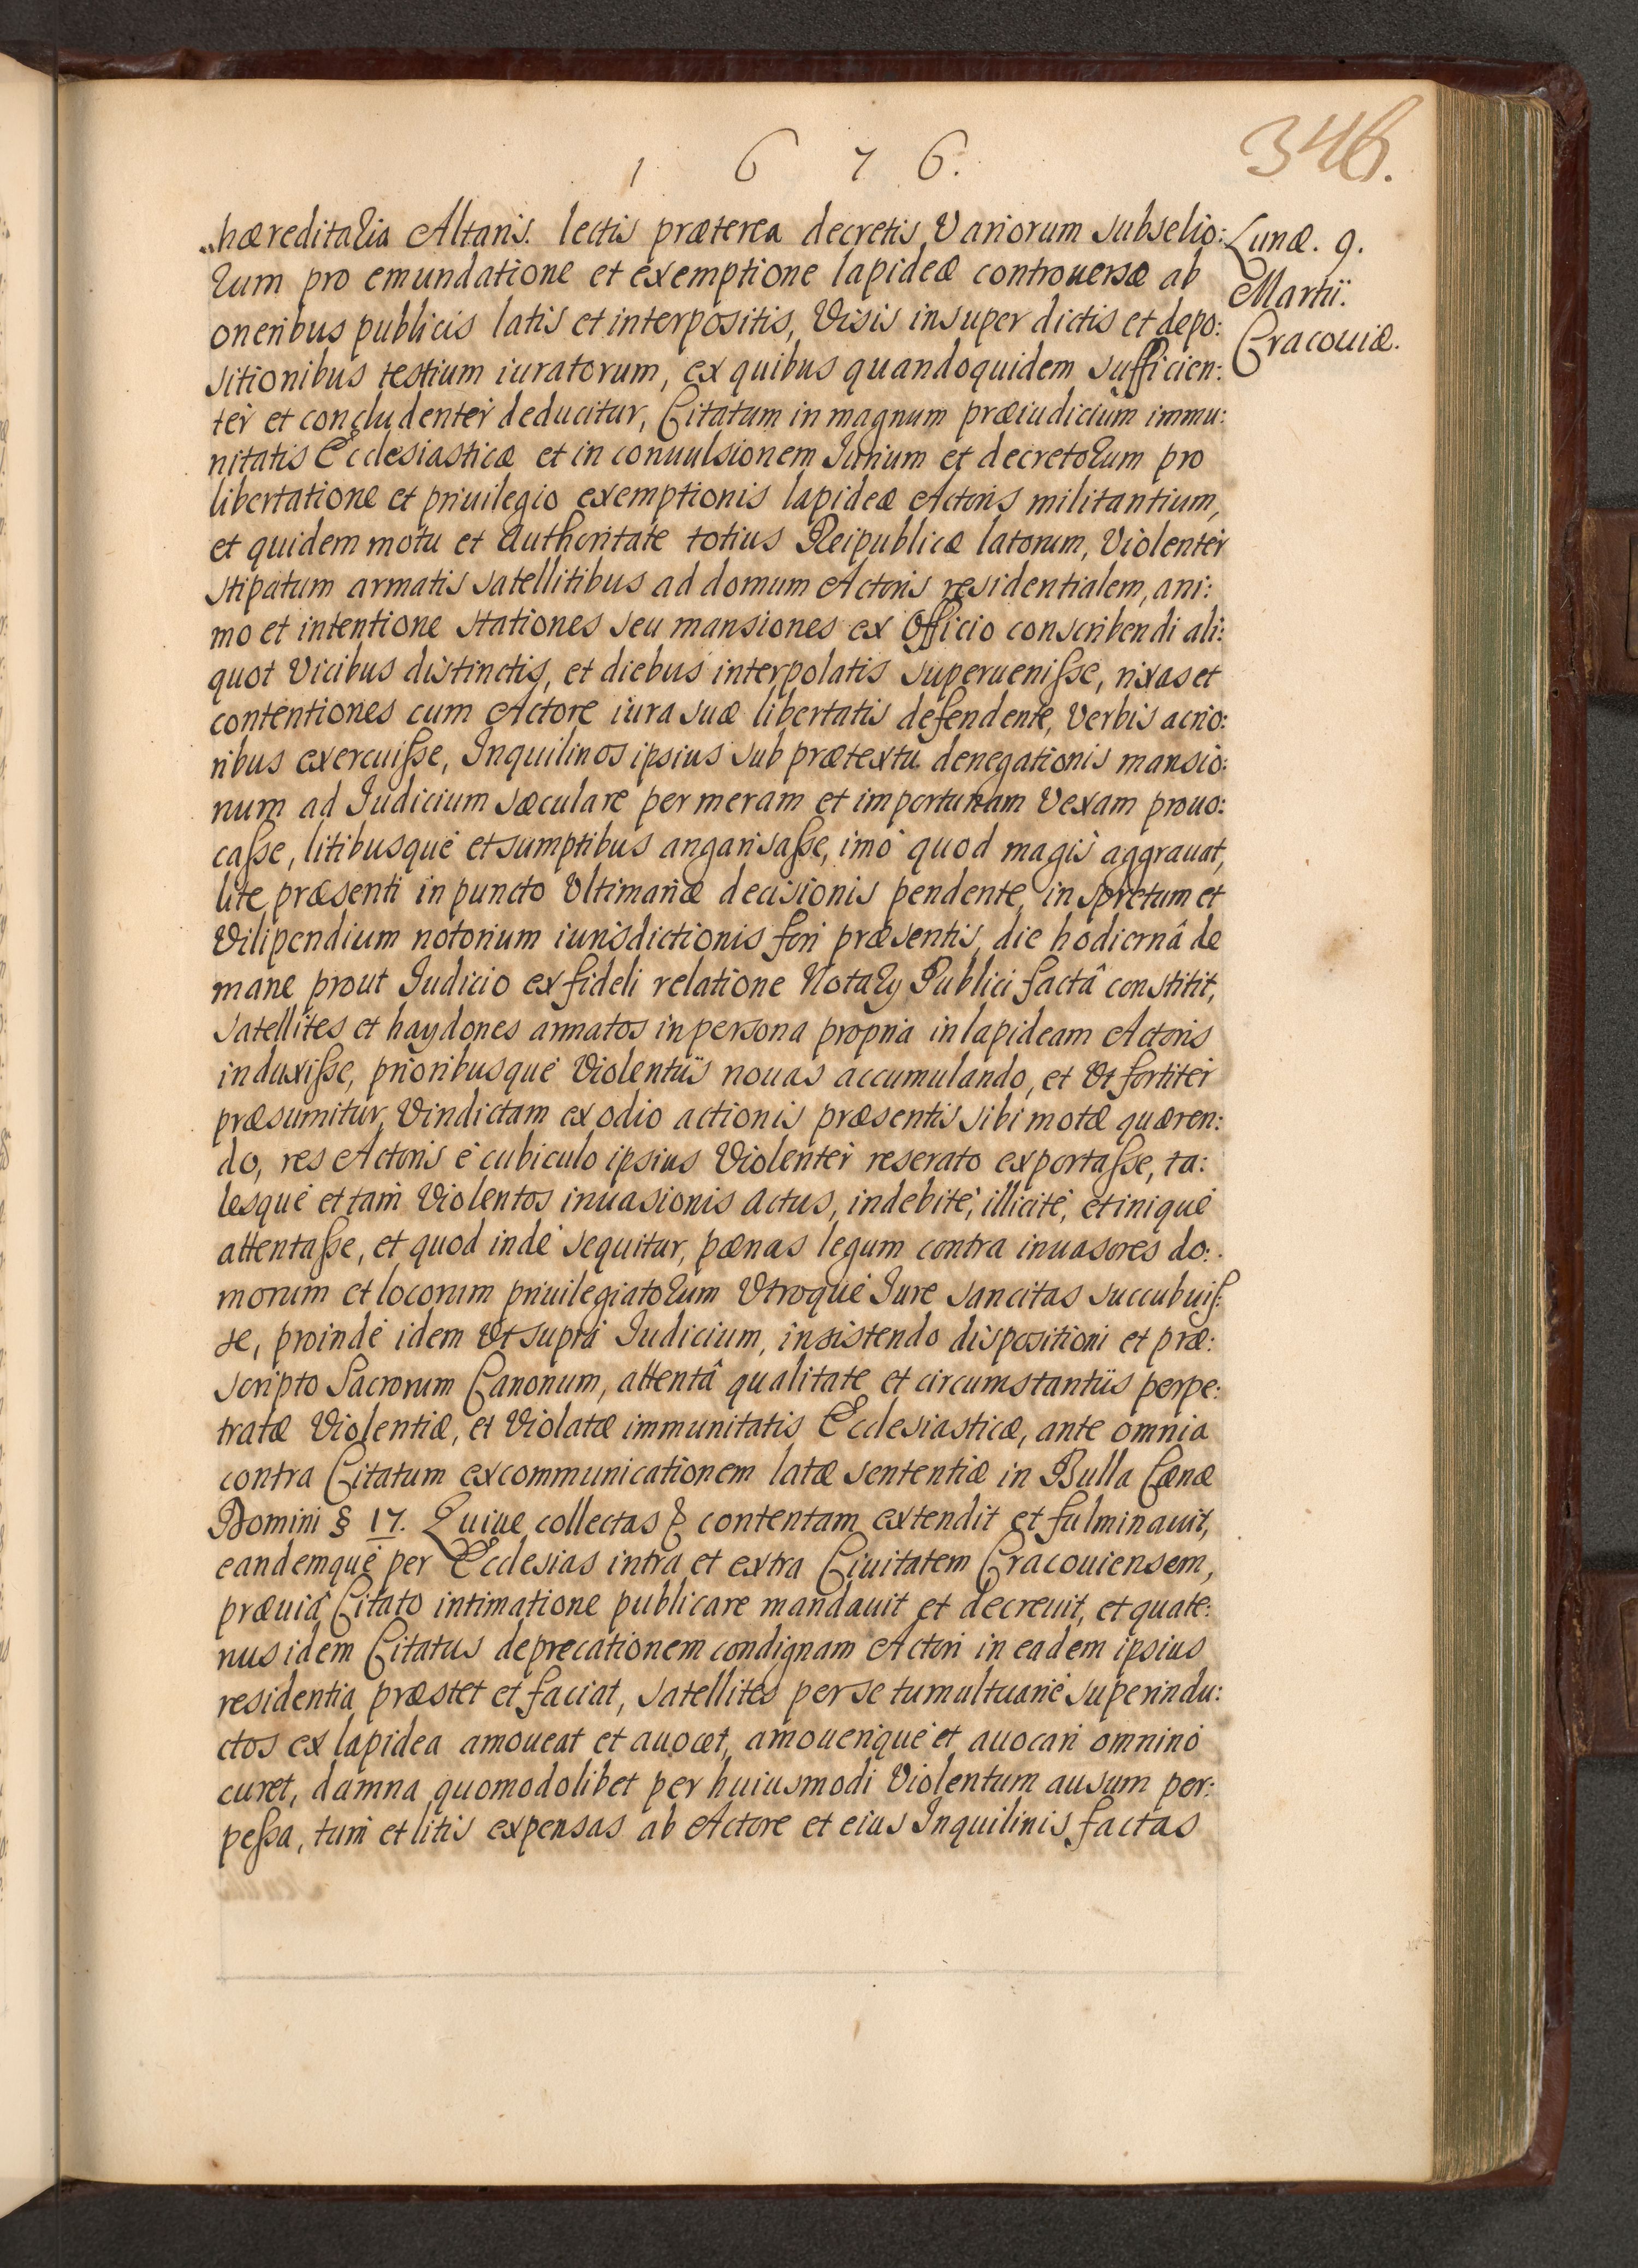 1 6 7 6.
346.
hæreditaria Altaris. lectis præterea decretis Variorum subselio:
rum pro emundatione et exemptione lapideæ controuersæ ab
oneribus publicis latis et interpositis, Visis insuper dictis et depo:
sitionibus testium iuratorum, ex quibus quandoquidem sufficien:
ter et concludenter deducitur, Citatum in magnum præiudicium immu:
nitatis Ecclesiasticæ et in conuulsionem Iurium et decretorum pro
libertatione et priuilegio exemptionis lapideæ Actoris militantium,
et quidem motu et Authoritate totius Reipublicæ latorum, Violenter
stipatum armatis satellitibus ad domum Actoris residentialem, ani:
mo et intentione stationes seu mansiones ex Officio conscribendi ali:
quot Vicibus distinctis, et diebus interpolatis superuenisse, rixas et
contentiones cum Actore iura suæ libertatis defendente, Verbis acrio:
ribus exercuisse, Inquilinos ipsius sub prætextu denegationis mansio:
num ad Iudicium sæculare per meram et importunam Vexam prouo:
casse, litibusque et sumptibus angarisasse, imò quod magis aggrauat,
lite præsenti in puncto Vltimariæ decisionis pendente, in spretum et
Vilipendium notorium iurisdictionis fori præsentis, die hodiernâ de
mane prout Iudicio ex fideli relatione Notarÿ Publici factâ constitit,
satellites et haydones armatos in persona propria in lapideam Actoris
induxisse, prioribusque Violentiis nouas accumulando, et Vt fortiter
præsumitur, Vindictam ex odio actionis præsentis sibi motæ quæren:
do, res Actoris è cubiculo ipsius Violenter reserato exportasse, ta:
lesque et tam Violentos inuasionis actus, indebitè, illicitè, et iniquè
attentasse, et quod indè sequitur, pænas legum contra inuasores do:
morum et locorum priuilegiatorum Vtroque Iure sancitas succubuis:
se, proindè idem Vt suprà Iudicium, insistendo dispositioni et præ:
scripto Sacrorum Canonum, attentâ qualitate et circumstantiis perpe:
tratæ Violentiæ, et Violatæ immunitatis Ecclesiasticæ, ante omnia
contra Citatum excommunicationem latæ sententiæ in Bulla Cænæ
Domini § 17. Quiue collectas &c contentam extendit et fulminauit,
eandemque per Ecclesias intra et extra Ciuitatem Cracouiensem,
præuiâ Citato intimatione publicare mandauit et decreuit, et quate:
nus idem Citatus deprecationem condignam Actori in eadem ipsius
residentia præstet et faciat, satellites per se tumultuariè superindu:
ctos ex lapidea amoueat et auocet, amouerique et auocari omninò
curet, damna quomodolibet per huiusmodi Violentum ausum per:
pessa, tum et litis expensas ab Actore et eius Inquilinis factas
Lunæ. 9.
Martii.
Cracouiæ.